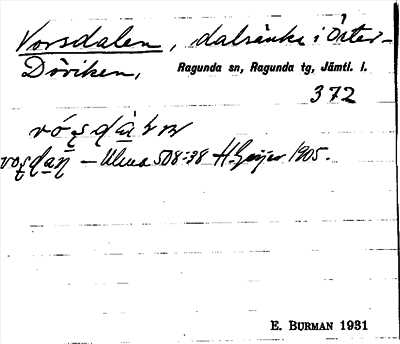 Vorsdalen, dalsänka i Öster-
Döviken, Ragunda sn, Ragunda tg, Jämtl. l.
372
508:38 H. Geijer 1905.
E. BURMAN 1931